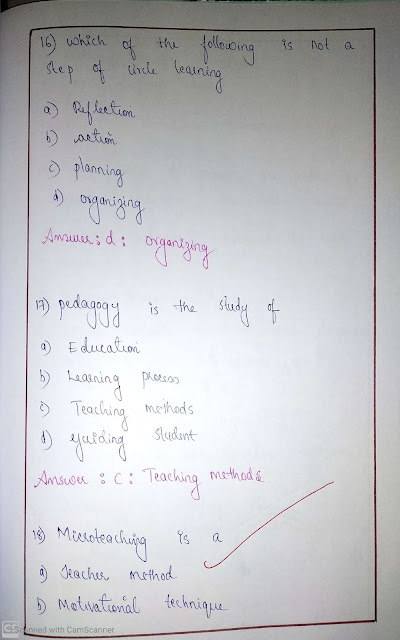 16) which of the following is not a
step of circle learning
a) Reflection
b) action
c) planning
d) organizing
Answer: d: organizing
17) pedagogy is the study of
a) Education
b) Learning process
c) Teaching methods
d) guiding student
Answer : C : Teaching methods
18) Microteaching is a
a) Teacher method
b) Motivational technique
CS Scanned with CamScanner